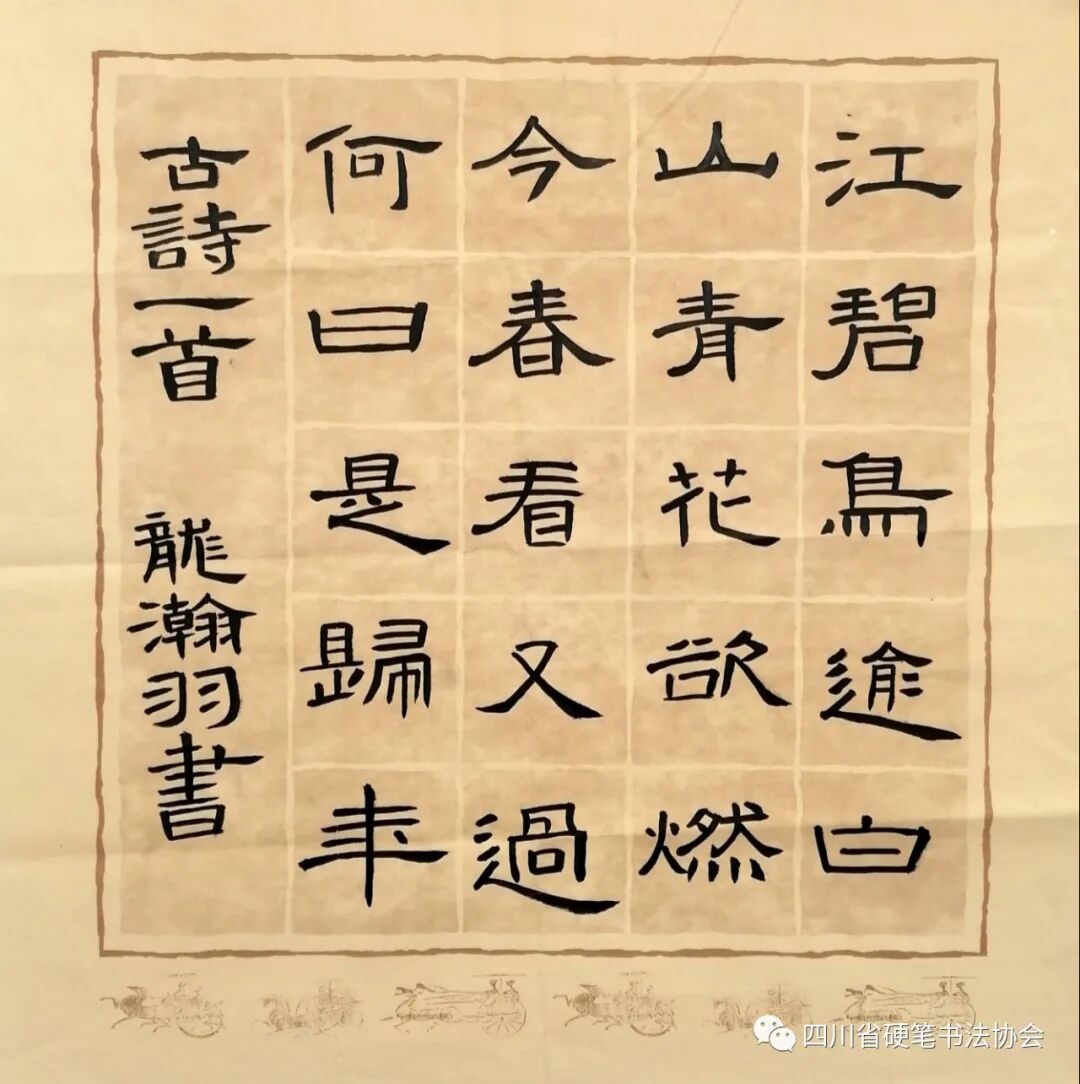 江碧鳥逾白
山青花欲燃
今春看又過
何日是歸年
古詩一首 龍瀚羽書
四川省硬笔书法协会